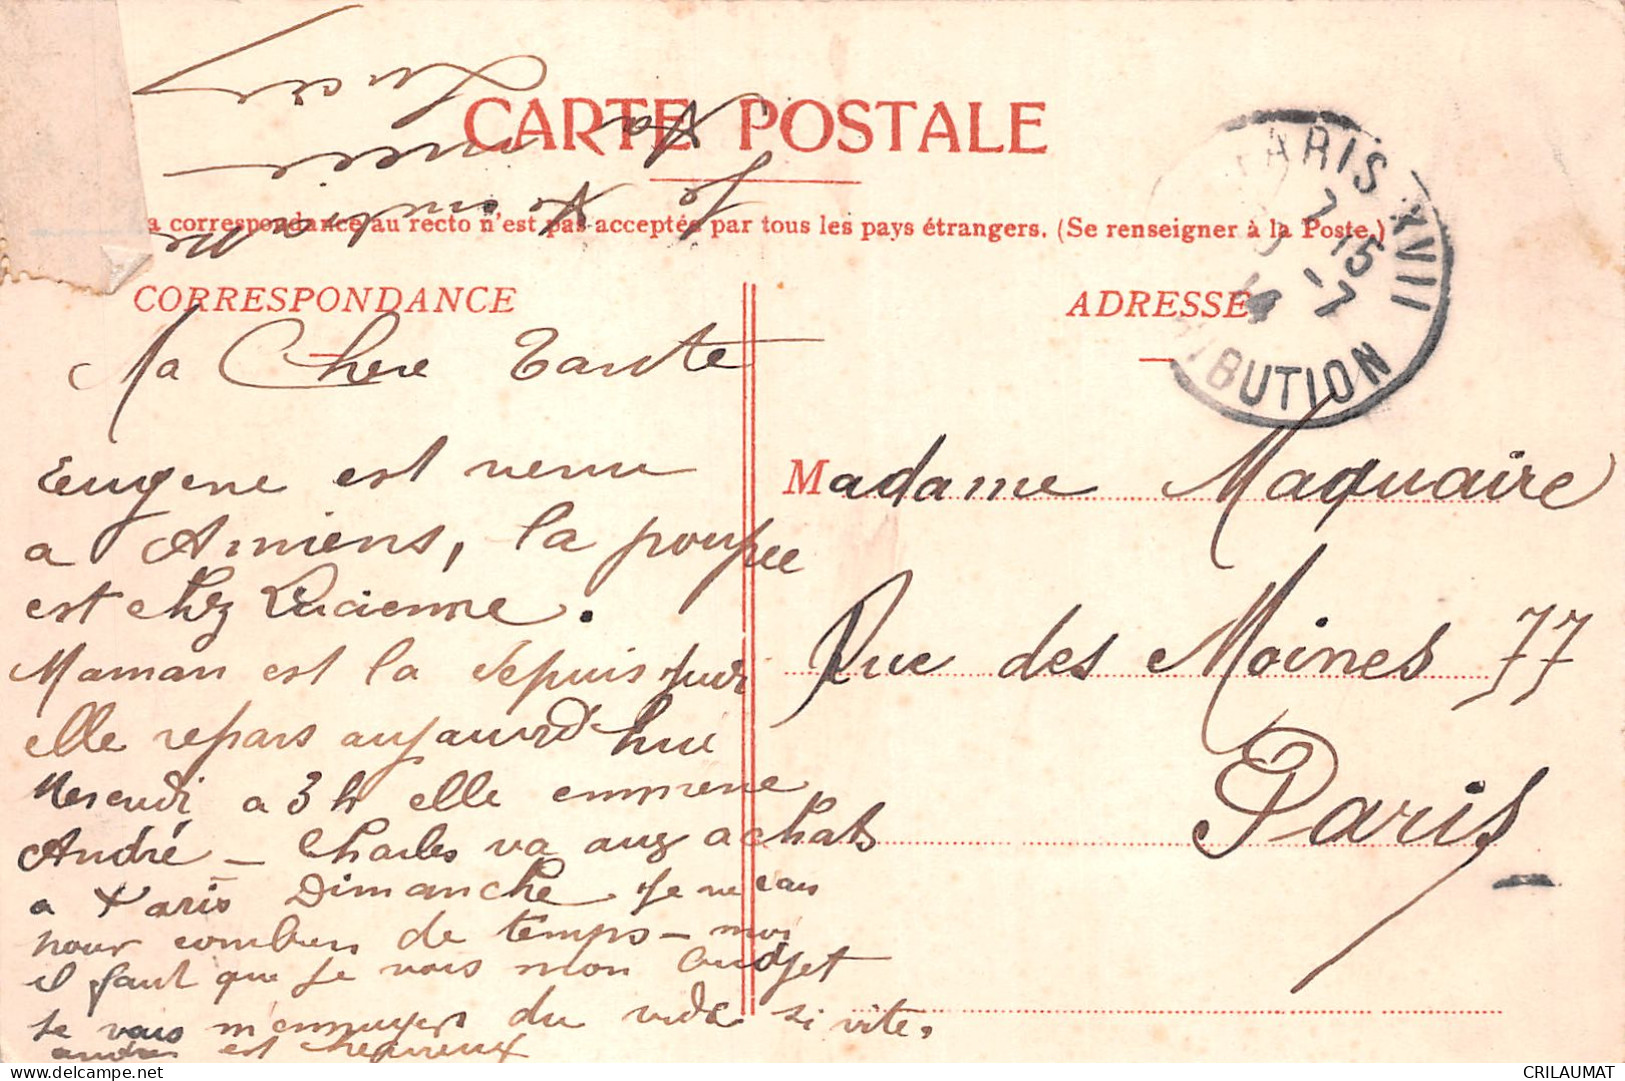 CARTE POSTALE
a correspondance au recto n'est pas acceptée par tous les pays étrangers. (Se renseigner à la Poste.)
CORRESPONDANCE
ADRESSE
PARIS XVII
7 15
-7
14
IBUTION
Ma Chere Tante
Eugene est venu
a Amiens, la poupee
est chez Lucienne.
Maman est la depuis jeudi
elle repars aujourd'hui
Mercredi a 3 h elle emmene
André - Charles va aux achats
a Paris Dimanche je ne sais
pour combien de temps - moi
il faut que je vois mon budget
je vais m'ennuyer du vide si vite.
andré est heureux
Je t'embrasse
ta niece
Lucie
Madame Maquaire
Rue des Moines 77
Paris
CRILAUMAT